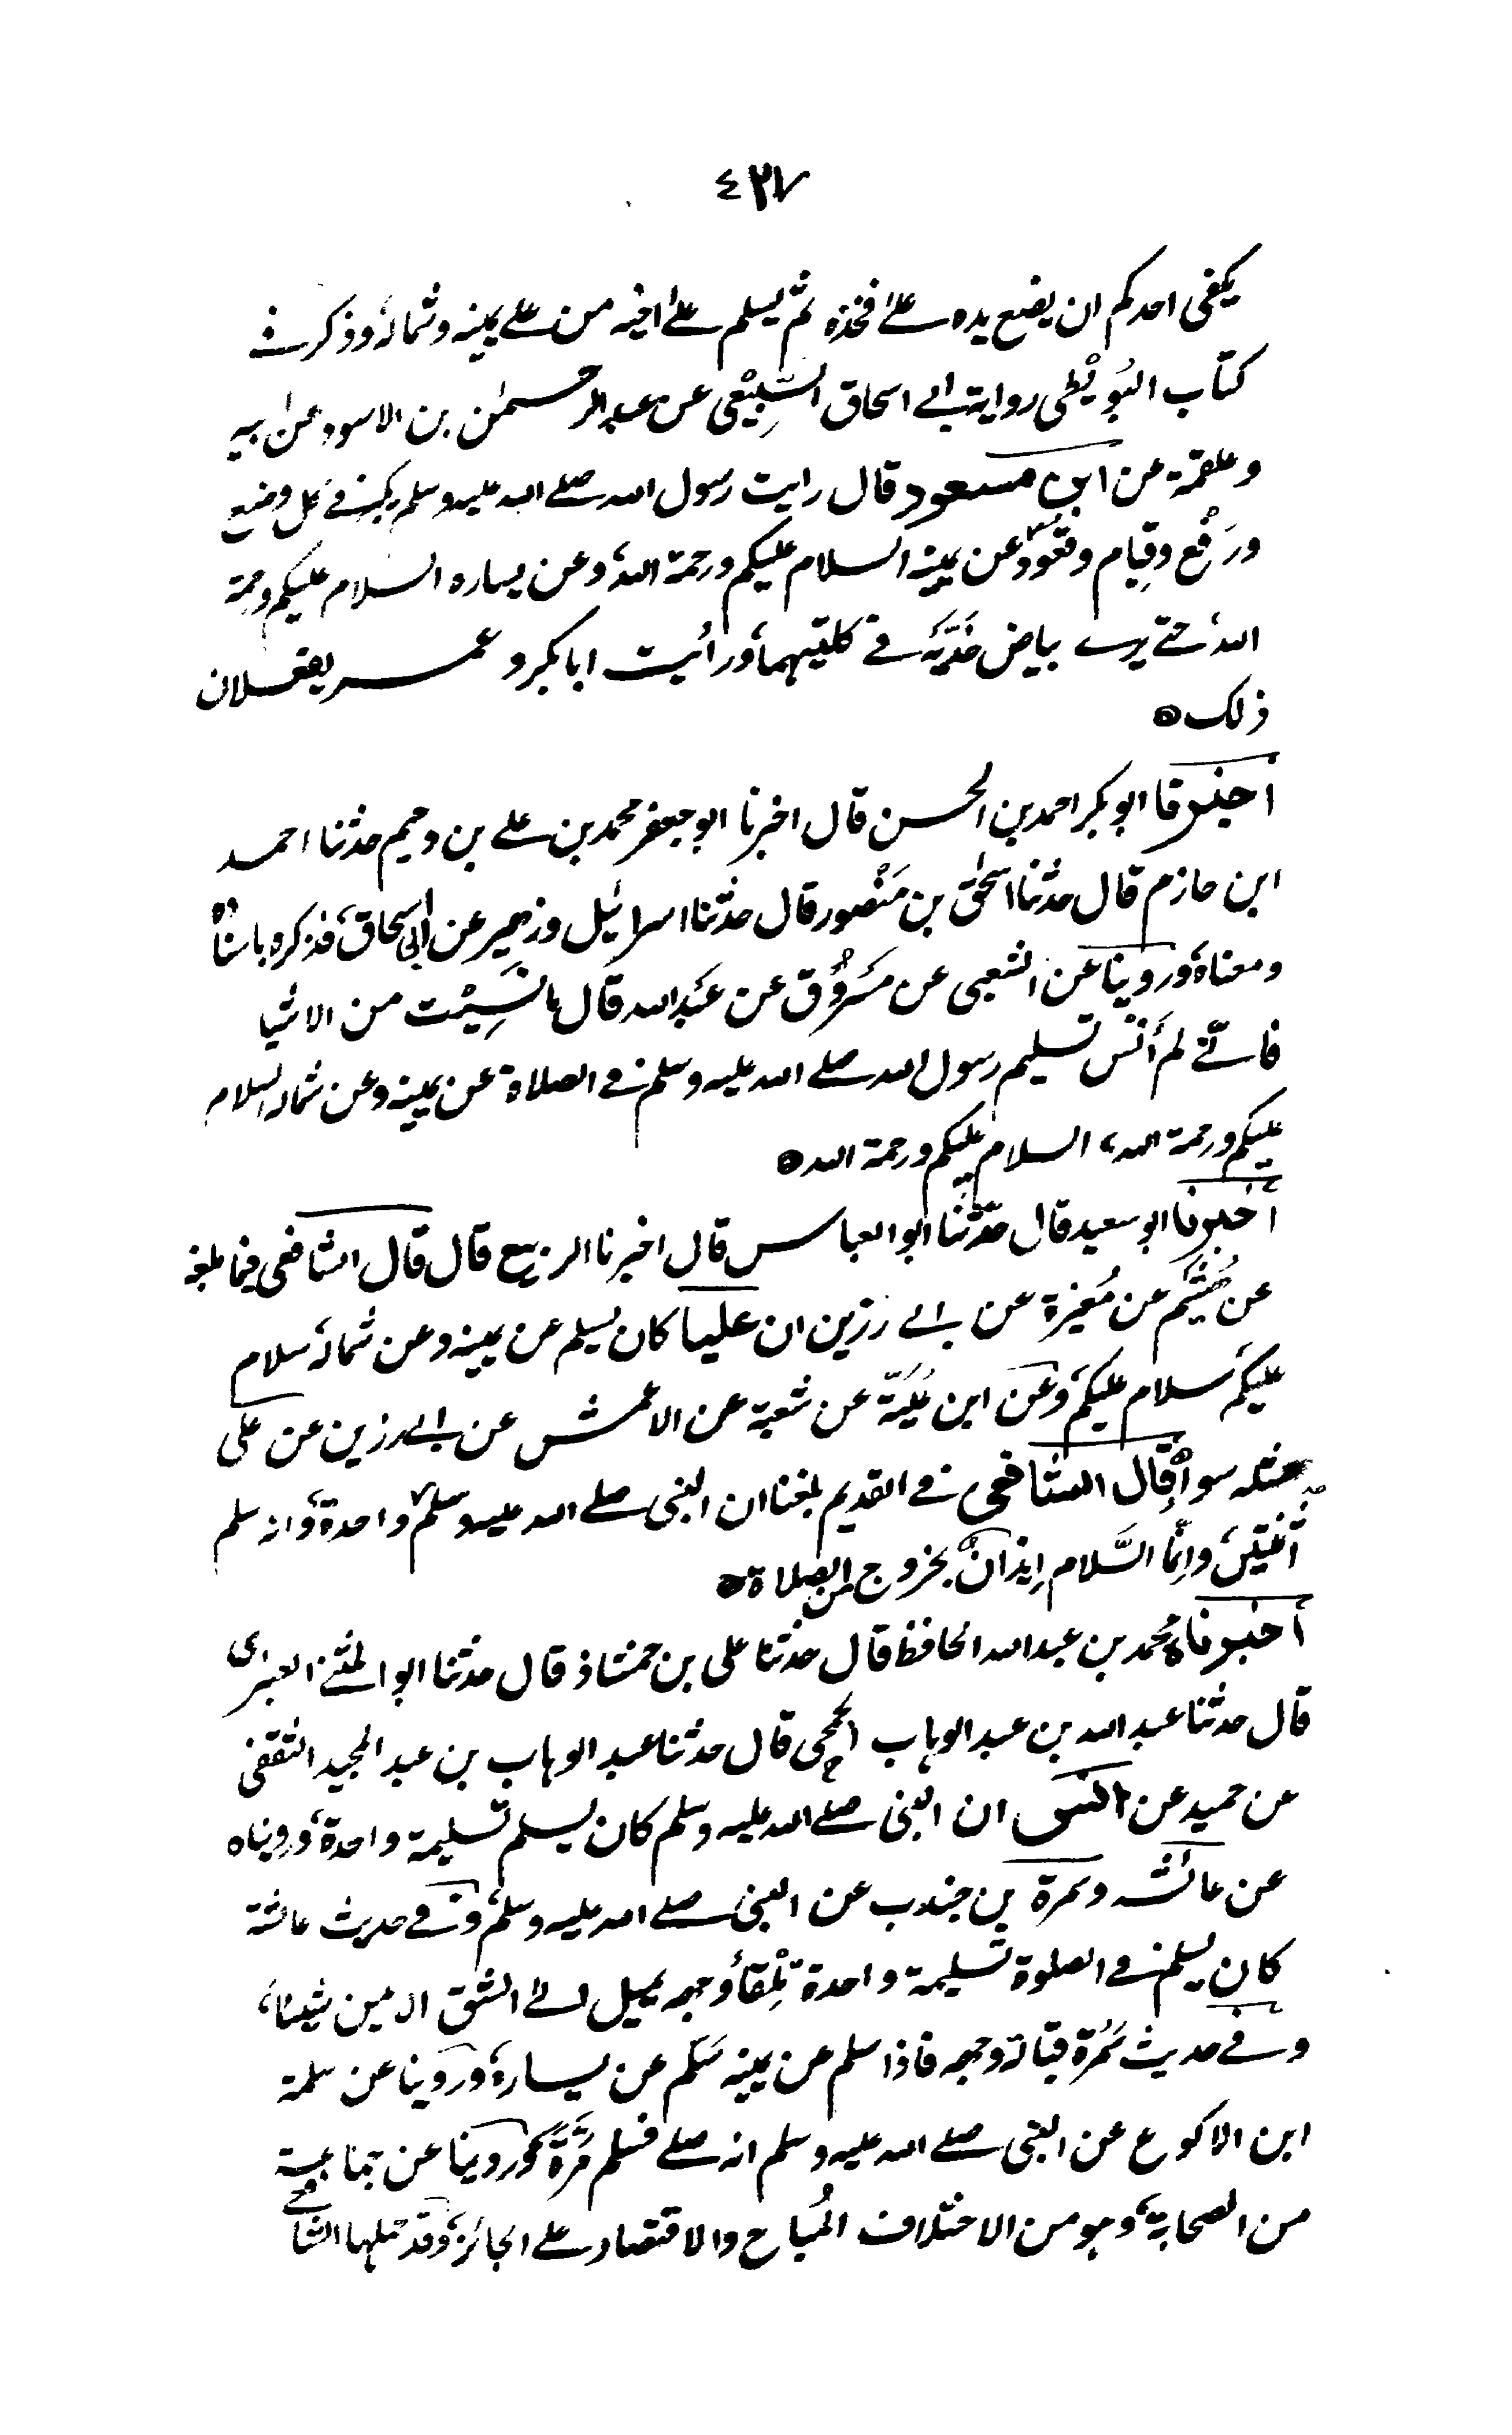 ٤٣٧
يكفي احدكم ان يضع يده على فخذه ثم يسلم على اخيه من على يمينه وشماله، وذكر في
كتاب البُوَيْطي رواية ابي اسحاق السَّبِيْعي عن عبد الرحمٰن بن الاسود عن ابيه
وعلقمة عن ابن مسعود قال رايت رسول الله صلى الله عليه وسلم يكبر في كل وضع
ورَفْع وقِيام وقعود وعن يمينه السلام عليكم ورحمة الله، وعن يساره السلام عليكم ورحمة
الله، حتى يرى بياض خَدَّيْه في كلتيهما، ورأيت ابا بكر وعمر يفعلان
ذلك ٥
أخبرنا ابو بكر احمد بن الحسن قال اخبرنا ابو جعفر محمد بن علي بن دحيم حدثنا احمد
ابن حازم قال حدثنا اسحٰق بن مَنْصور قال حدثنا اسرائيل وزهير عن ابي اسحاق، فذكره باسناده
ومعناه، وروينا عن الشعبي عن مَسْرُوْق عن عَبْد الله قال ما نَسِيْت من الاشيا
فاني لم أَنْسَ تسليم رسول الله صلى الله عليه وسلم في الصلاة عن يمينه وعن شماله السلام
عليكم ورحمة الله، السلام عليكم ورحمة الله ٥
أخبرنا ابو سعيد قال حَدَّثَنا ابو العباس قال اخبرنا الربيع قال قال الشافعي فيما بلغه
عن هُشَيْم عن مُغيرة عن ابي رزين ان عليا كان يسلم عن يمينه وعن شماله، سلام
عليكم، سلام عليكم، وعن ابن عُلَيَّة عن شعبة عن الاعمش عن ابي رزين عن علي
مثله سواْ، قال الشافعي في القديم بلغنا ان النبي صلى الله عليه وسلم سلم واحدة، وانه سلم
اثنتين، وانَّما السَّلام اِيذانٌ بخروج من الصلاة ٥
أخبرنا محمد بن عبد الله الحافظ قال حدثنا علي بن حمشاذ قال حدثنا ابو المثنى العنبري
قال حدثنا عبد الله بن عبد الوهاب الحجبي قال حدثنا عبد الوهاب بن عبد المجيد الثقفي
عن حميد عن انس ان النبي صلى الله عليه وسلم كان يسلم تسليمة واحدة، ورويناه
عن عائشه وسمرة بن جندب عن النبي صلى الله عليه وسلم، وفي حديث عائشة
كان يسلم في الصلوة تسليمة واحدة تِلْقاْ وجهه يميل الى الشق الايمن شيئا،
وفي حديث سَمُرة قبالة وجهه فاذا سلم عن يمينه سَلَّم عن يساره، وروينا عن سلمة
ابن الاكوع عن النبي صلى الله عليه وسلم انه صلى فسلم مَرَّةً، وروينا عن جماعة
من الصحابة، وهو من الاختلاف المُباح والاقتصار على الجائز، وقد حملها الشافعي